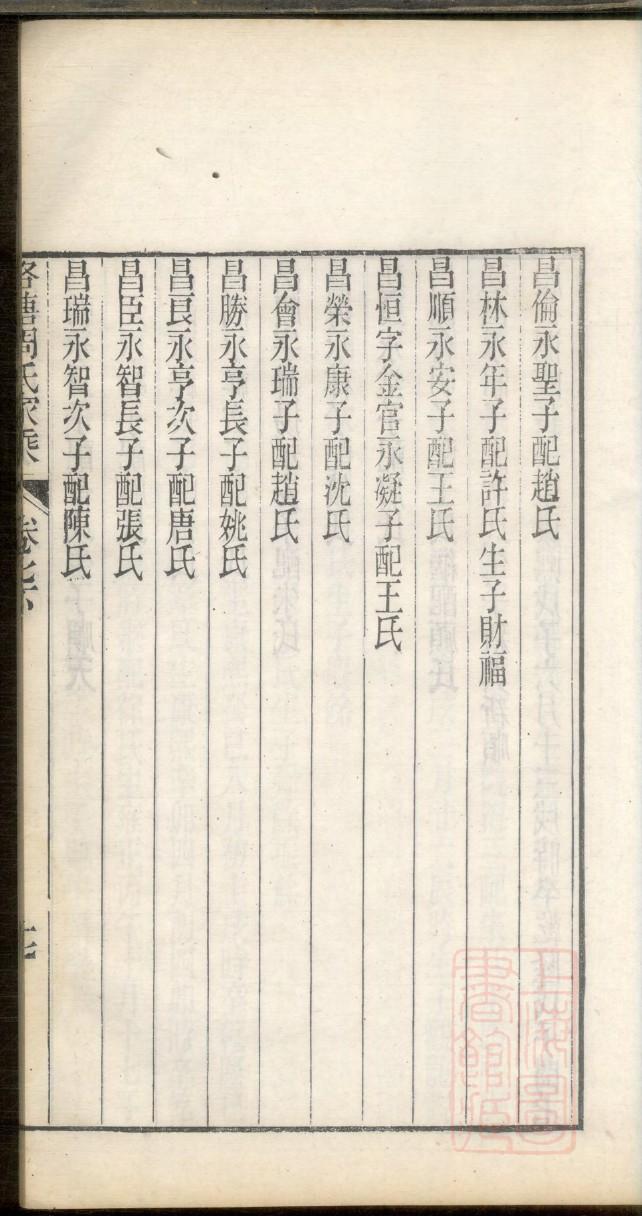 昌倫永聖子配趙氏
昌林永年子配許氏生子財福
昌順永安子配王氏
昌恒字金官永凝子配王氏
昌榮永康子配沈氏
昌會永瑞子配趙氏
昌勝永亨長子配姚氏
昌艮永亨次子配唐氏
昌臣永智長子配張氏
昌瑞永智次子配陳氏
塘周氏家乘 卷 七
上海圖書館藏